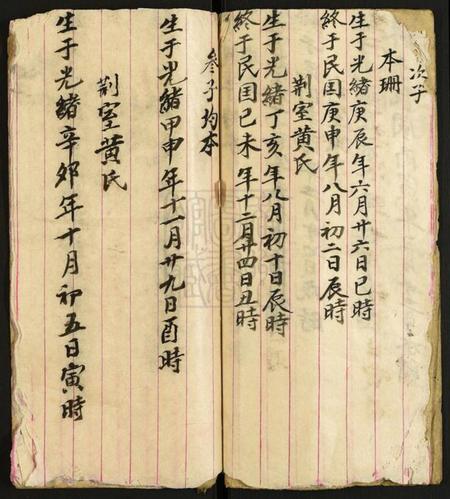 次子
本珊
生于光緒庚辰年六月廿六日巳時
終于民国庚申年八月初二日辰時
荆室黄氏
生于光緒丁亥年八月初十日辰時
終于民国已未年十二月廿四日丑時
叁子均本
生于光緒甲申年十一月廿九日酉時
荆室黄氏
生于光緒辛卯年十月初五日寅時